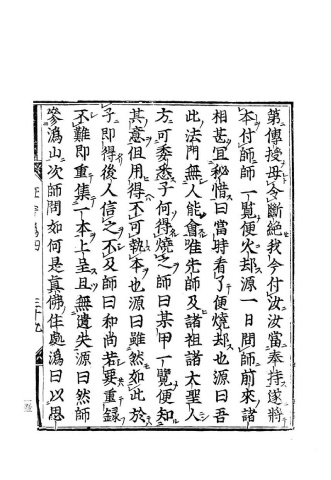 第傳授毋令斷絕我今付汝汝當奉持遂將
本付師師一覽便火却源一日問師前來諸
相甚宜秘惜曰當時看了便燒却也源曰吾
此法門無人能會唯先師及諸祖諸大聖人
方可委悉子何得燒之師曰某甲一覽便知
其意但用得不可執本也源曰雖然如此於
子即得後人信之不及師曰和尚若要重録
不難即重集一本上呈且無遺失源曰然師
參溈山次師問如何是真佛住處溈曰以思